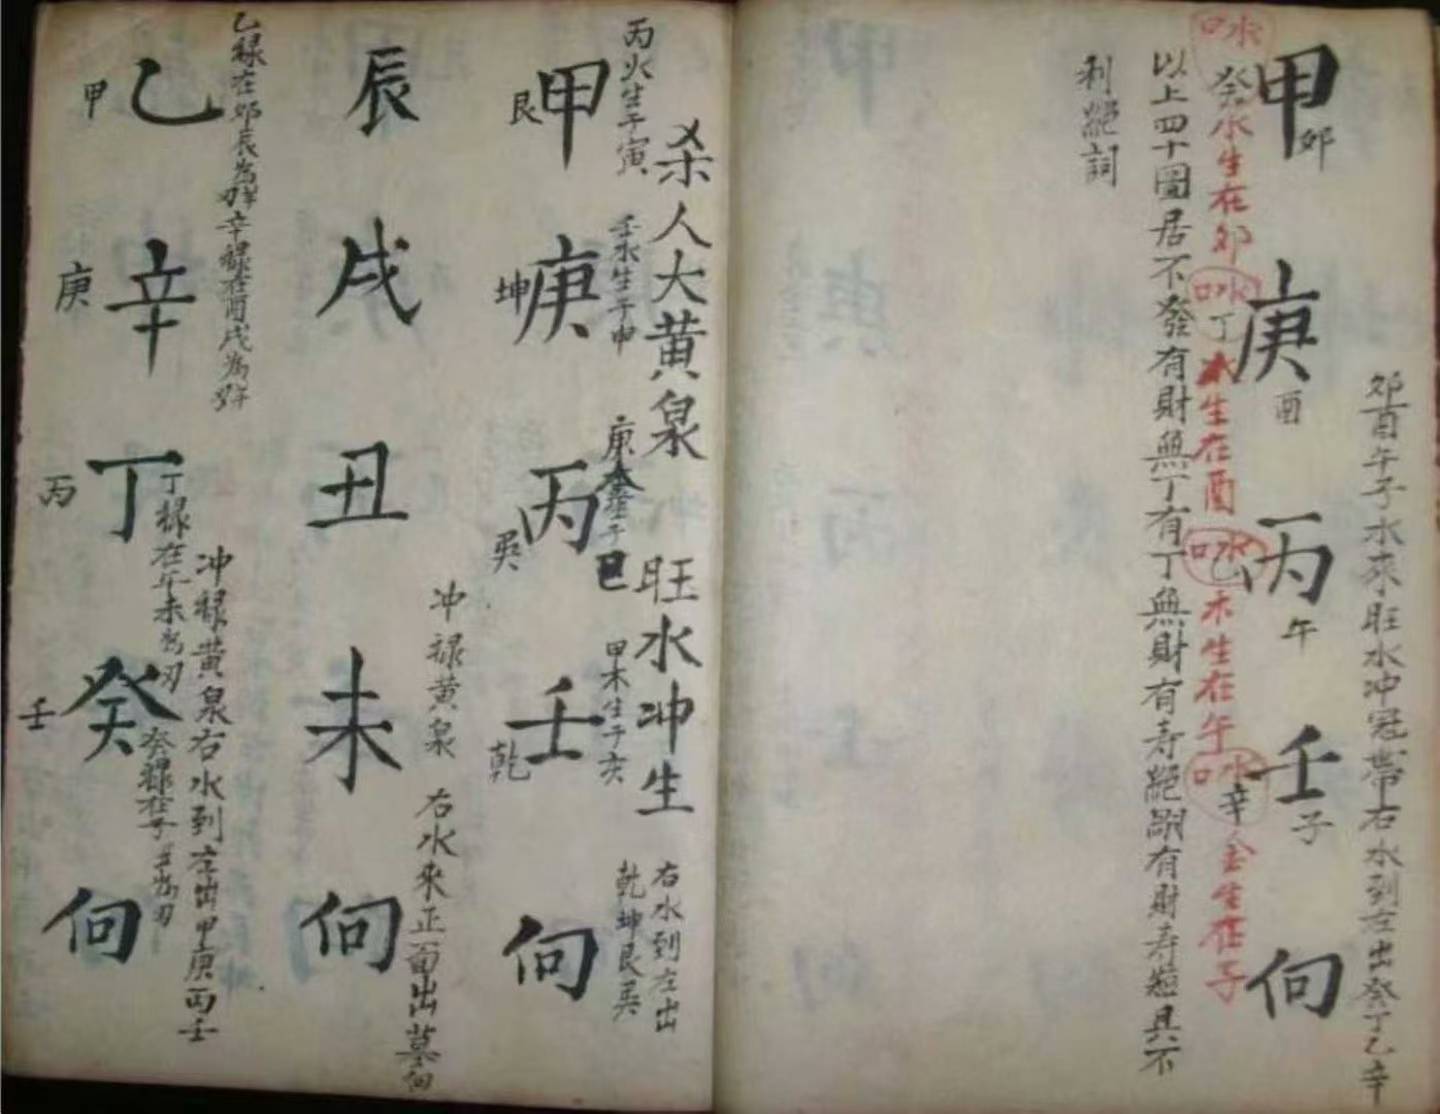 卯酉午子水來旺水冲冠帶右水到左出癸丁乙辛
甲庚丙壬向
卯
酉
午
子
口水
癸水生在卯
口水
丁木生在酉
口水
乙木生在午
口水
辛金生在子
以上四十圖居不發有財無丁有丁無財有寿絕嗣有財寿短具不
利絕詞
杀人大黄泉
旺水冲生
右水到左出
乾坤艮巽
丙火生于寅
壬水生于申
庚金生于巳
甲木生于亥
甲庚丙壬向
艮
坤
巽
乾
冲禄黄泉
右水來正面出墓向
辰戌丑未向
乙禄在卯辰為羊刃
辛禄在酉戌為
丁禄在午未為刃
癸禄在子丑為刃
冲禄黄泉右水到左出甲庚丙壬
乙辛丁癸向
甲
庚
丙
壬